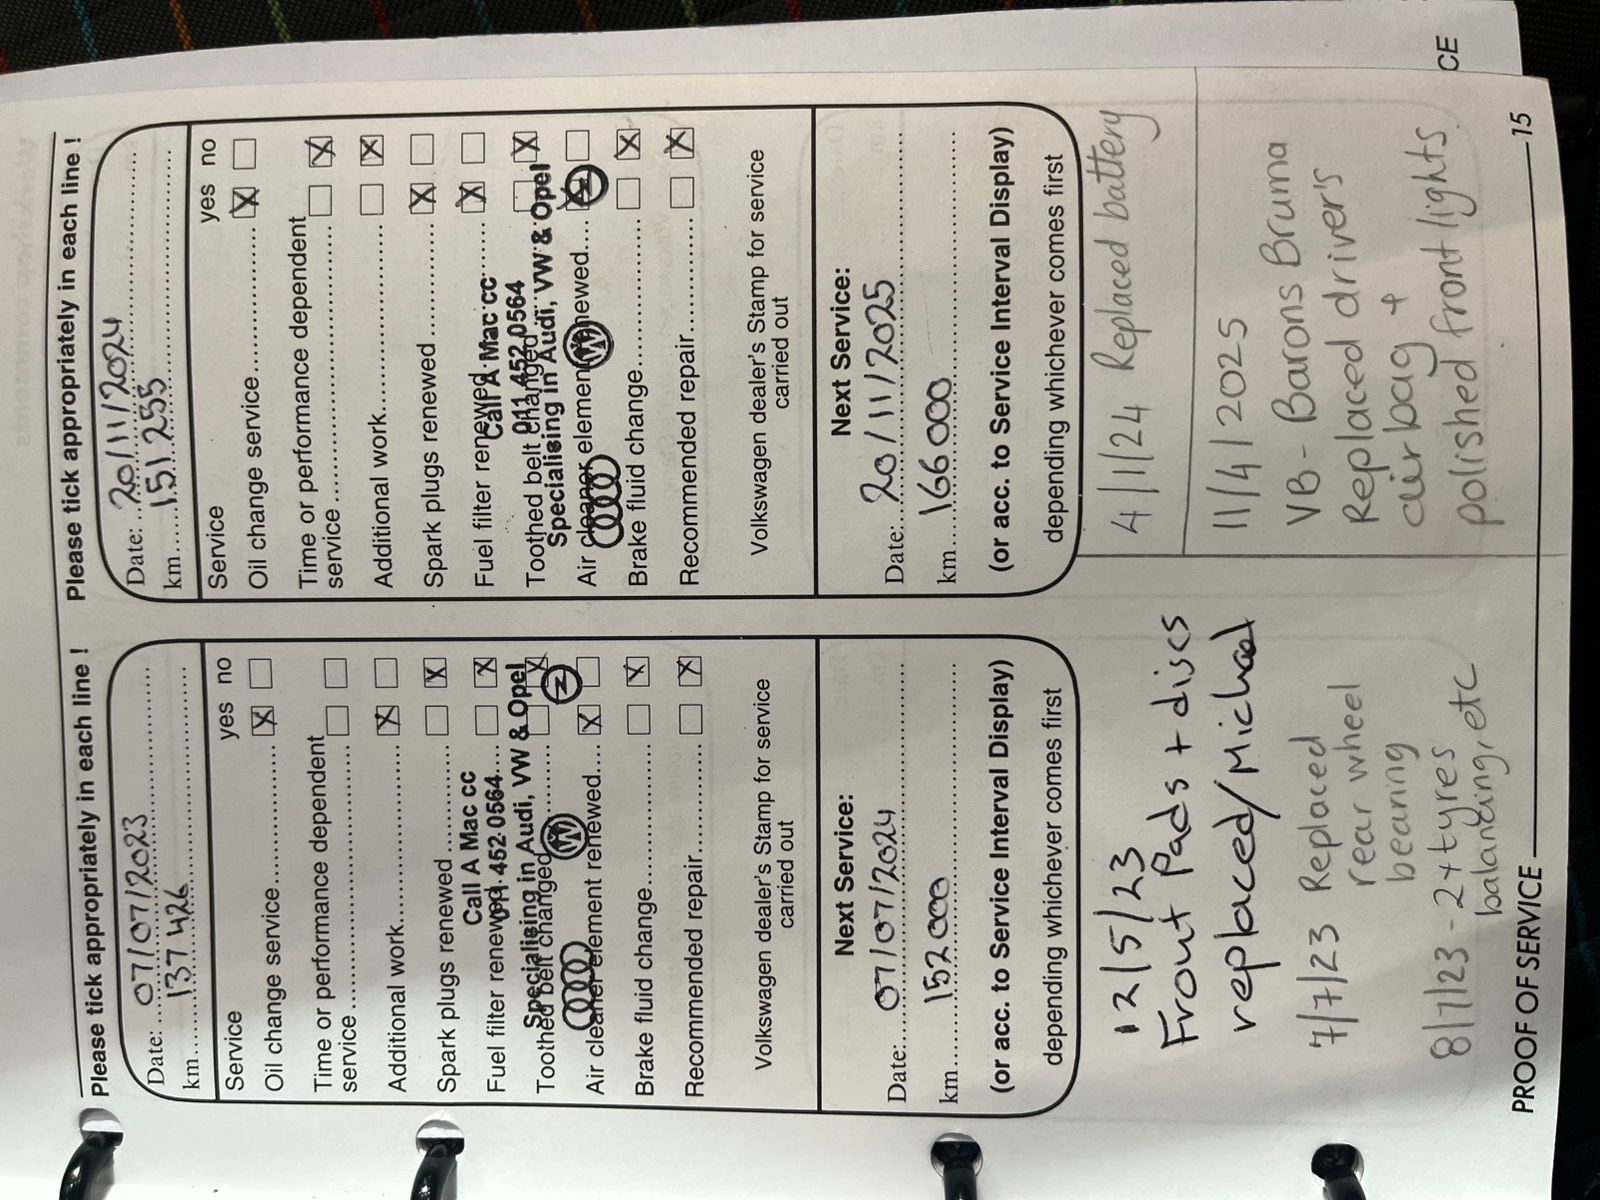 Please tick appropriately in each line !
Date: 07/07/2023
km 137 426
yes no
Service
Oil change service
Time or performance dependent
service
Additional work
Spark plugs renewed
Fuel filter renewed
Toothed belt changed
Air cleaner element renewed
Brake fluid change
Recommended repair
Call A Mac cc
011 452 0564
Specialising in Audi, VW & Opel
Volkswagen dealer's Stamp for service
carried out
Next Service:
Date: 07/07/2024
km 152000
(or acc. to Service Interval Display)
depending whichever comes first
12/5/23
Front Pads + discs
replaced/Michael
7/7/23 Replaced
rear wheel
bearing
8/7/23 - 2 tyres
balancing, etc
Please tick appropriately in each line !
Date: 20/11/2024
km 151 255
yes no
Service
Oil change service
Time or performance dependent
service
Additional work
Spark plugs renewed
Fuel filter renewed
Toothed belt changed
Air cleaner element renewed
Brake fluid change
Recommended repair
Call A Mac cc
011 452 0564
Specialising in Audi, VW & Opel
Volkswagen dealer's Stamp for service
carried out
Next Service:
Date: 20/11/2025
km 166 000
(or acc. to Service Interval Display)
depending whichever comes first
4/1/24 Replaced battery
11/4/2025
VB - Barons Bruma
Replaced driver's
airbag +
polished front lights
PROOF OF SERVICE 15
CE